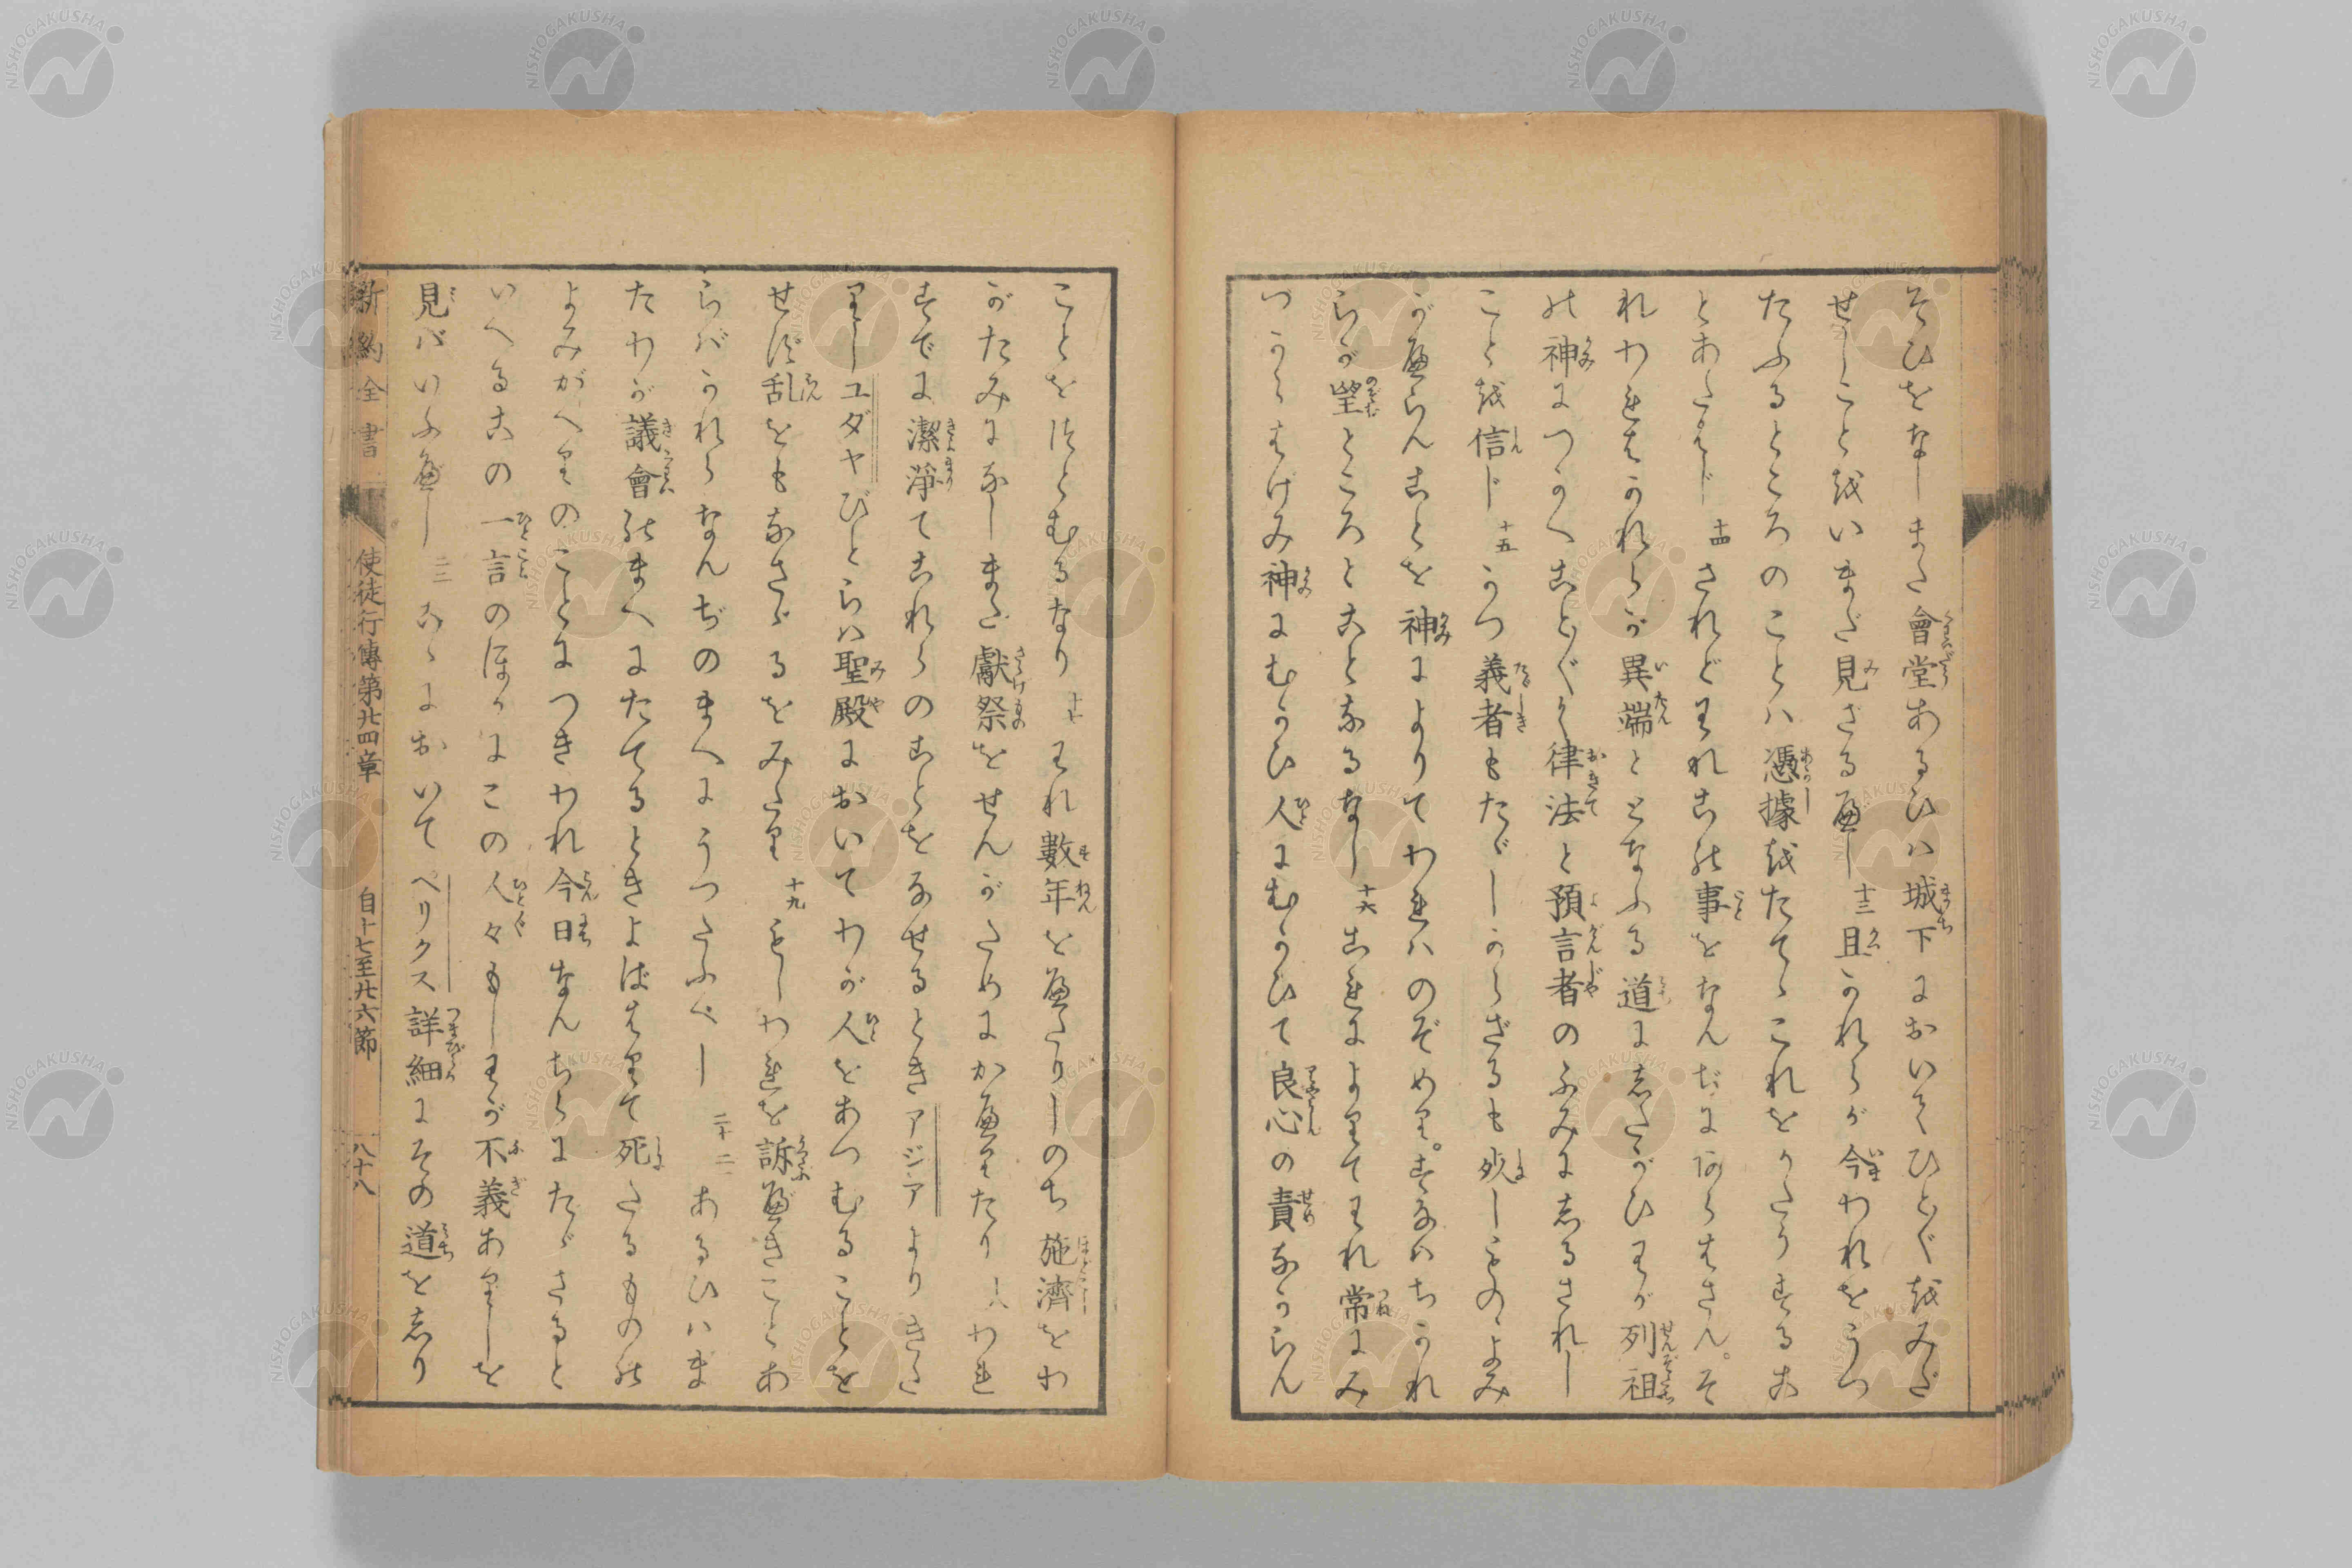 そひをなしまた會堂あるひハ城下においてひと〴〵をみだ
せしことをいまだ見ざるべし 十三 且かれらが今われをうつ
たふるところのことハ憑據をたてゝこれをかたりするあ
とあたはじ 十四 されどわれこの事をなんぢにあらはさん。そ
れわれはかれらが異端ととなふる道にしたがひわが列祖
の神につかへことごとく律法と預言者のふみにしるされし
ことを信じ 十五 かつ義者もたゞしからざるも死しものゝよみ
がへらんことを神によりてわれハのぞめり。すなハちかれ
らが望ところとことなるなし 十六 これによりてわれ常にみ
づからはげみ神にむかひ人にむかひて良心の責なからん
ことをつとむるなり 十七 われ數年をへたりしのち施濟をわ
がたみになしまた獻祭をせんがためにかへりたり 十八 われ
すでに潔淨てこれらのことをなせるときアジアよりきた
りしユダヤびとらハ聖殿においてわが人をあつむることを
せず乱をもなさゞるをみたり 十九 もしわれを訴べきことあ
らバかれらなんぢのまへにうつたふべし 二十 二一 あるひハま
たわが議會のまへにたてるときよばはりて死たるものの
よみがへりのことにつきわれ今日なんぢらにたゞさると
いへるこの一言のほかにこの人々もしわが不義ありしを
見バいふべし 二二 こゝにおいてペリクス詳細にその道をしり
新約全書 使徒行傳第廿四章 自十七至廿六節 八十八
NISHOGAKUSHA